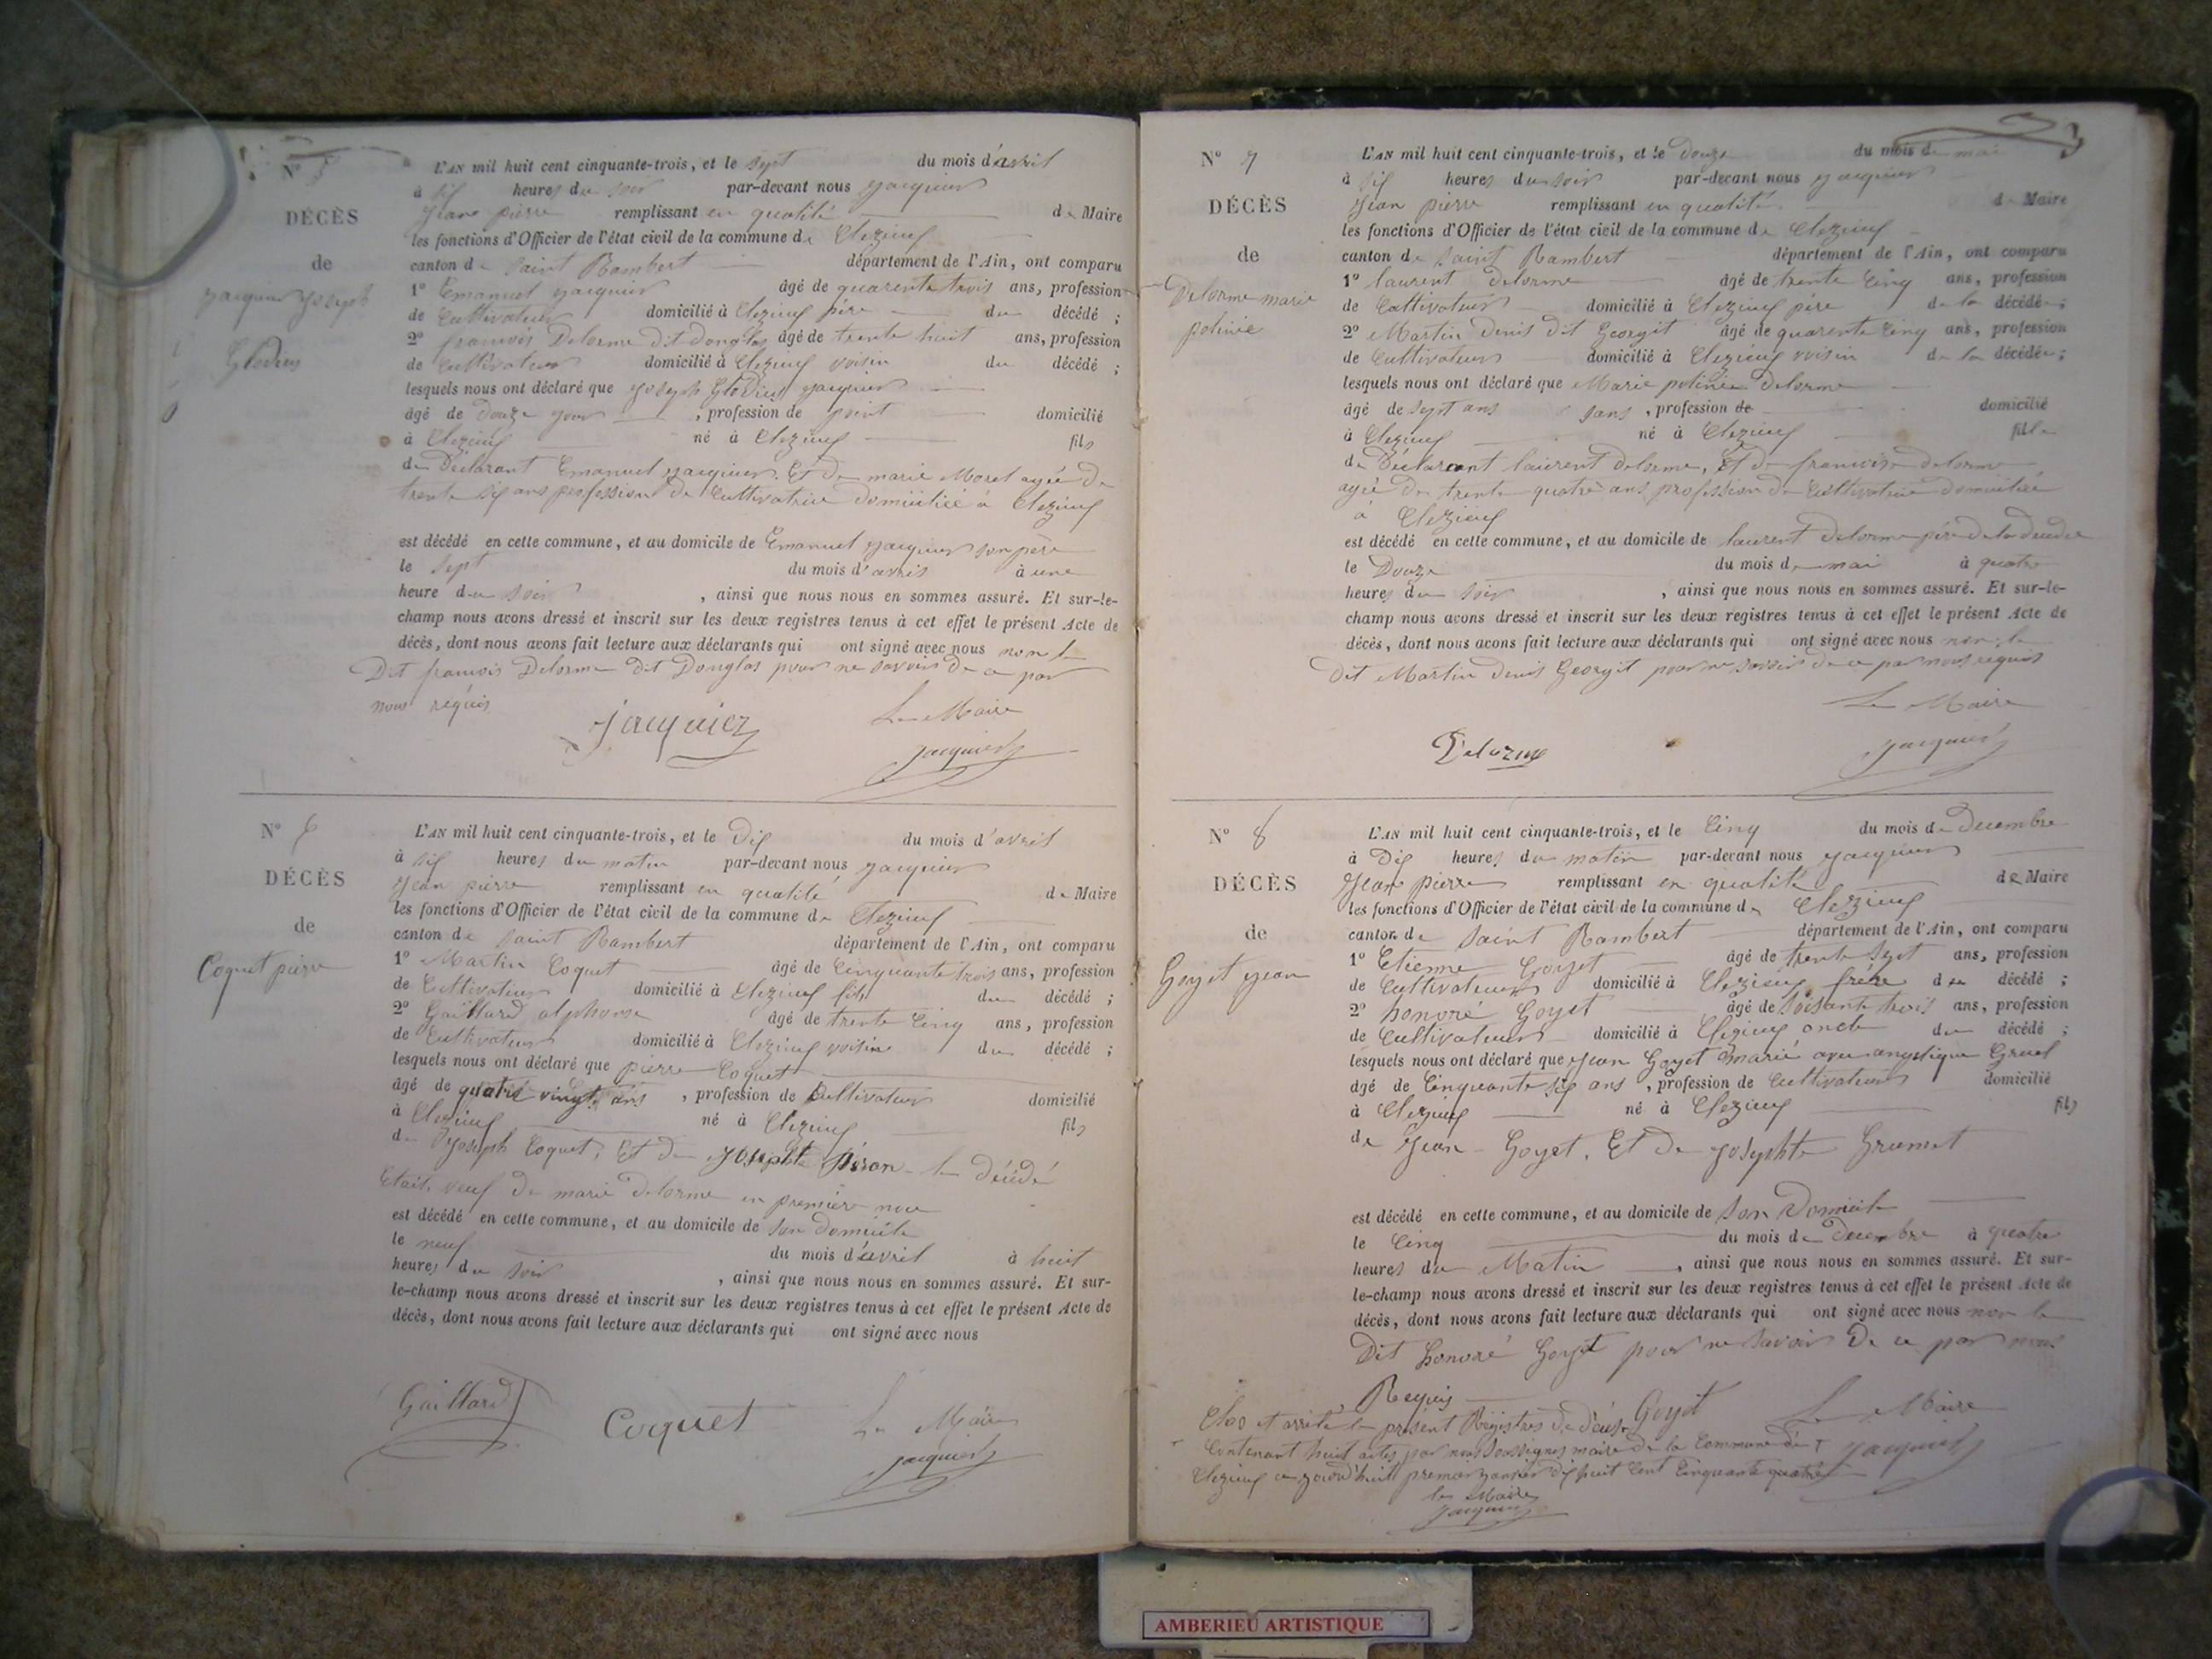 N° 5
DÉCÈS
de
Jacquier Joseph
Glodius
L'AN mil huit cent cinquante-trois, et le sept du mois d'avril
à six heures du soir par-devant nous Jacquier
Jean pierre remplissant en qualité de Maire
les fonctions d'Officier de l'état civil de la commune de Clezieuf
canton de Saint Rambert département de l'Ain, ont comparu
1° Emanuel Jacquier âgé de quarente trois ans, profession
de Cultivateur domicilié à Clezieuf père du décédé ;
2° françois Delorme dit Donglas âgé de trente huit ans, profession
de Cultivateur domicilié à Clezieuf voisin du décédé ;
lesquels nous ont déclaré que Joseph Glodius Jacquier
âgé de Douze jour , profession de point domicilié
à Clezieuf né à Clezieuf fils
du Déclarant Emanuel Jacquier. Et de marie Morel agée de
trente six ans profession de Cultivatrice Domicilié à Clezieuf
est décédé en cette commune, et au domicile de Emanuel Jacquier son père
le sept du mois d'avril à une
heure du soir , ainsi que nous nous en sommes assuré. Et sur-le-
champ nous avons dressé et inscrit sur les deux registres tenus à cet effet le présent Acte de
décès, dont nous avons fait lecture aux déclarants qui ont signé avec nous non le
Dit françois Delorme dit Donglas pour ne savoir De ce par
nous requis
Le Maire
jacquier
jacquier
N° 6
DÉCÈS
de
Coquet pierre
L'AN mil huit cent cinquante-trois, et le Dix du mois d'avril
à six heures du matin par-devant nous Jacquier
Jean pierre remplissant en qualité de Maire
les fonctions d'Officier de l'état civil de la commune de Clezieuf
canton de Saint Rambert département de l'Ain, ont comparu
1° Martin Coquet âgé de Cinquante trois ans, profession
de Cultivateur domicilié à Clezieuf fils du décédé ;
2° Gaillard alphonse âgé de trente Cinq ans, profession
de Cultivateur domicilié à Clezieuf voisin du décédé ;
lesquels nous ont déclaré que pierre Coquet
âgé de quatre vingt ans , profession de Cultivateur domicilié
à Clezieuf né à Clezieuf fils
de Joseph Coquet, Et de Josephte le Décédé
Etait veuf de marie Delorme en première noce
est décédé en cette commune, et au domicile de son Domicile
le neuf du mois d'avril à huit
heures du soir , ainsi que nous nous en sommes assuré. Et sur-
le-champ nous avons dressé et inscrit sur les deux registres tenus à cet effet le présent Acte de
décès, dont nous avons fait lecture aux déclarants qui ont signé avec nous
Gaillard
Coquet
Le Maire
jacquier
N° 7
DÉCÈS
de
Delorme marie
polinie
L'AN mil huit cent cinquante-trois, et le Douze du mois de mai
à six heures du soir par-devant nous Jacquier
Jean pierre remplissant en qualité de Maire
les fonctions d'Officier de l'état civil de la commune de Clezieuf
canton de Saint Rambert département de l'Ain, ont comparu
1° laurent Delorme âgé de trente Cinq ans, profession
de Cultivateur domicilié à Clezieuf père de la décédée ;
2° Martin Denis dit Georgit âgé de quarente Cinq ans, profession
de Cultivateur domicilié à Clezieuf voisin de la décédée ;
lesquels nous ont déclaré que Marie polinie Delorme
âgé de sept ans sans , profession de domicilié
à Clezieuf né à Clezieuf fille
du Déclarant laurent Delorme, Et de francoise Delorme
agée de trente quatre ans profession de Cultivatrice Domiciliée
à Clezieuf
est décédé en cette commune, et au domicile de laurent Delorme père de la Décédée
le Douze du mois de mai à quatre
heures du soir , ainsi que nous nous en sommes assuré. Et sur-le-
champ nous avons dressé et inscrit sur les deux registres tenus à cet effet le présent Acte de
décès, dont nous avons fait lecture aux déclarants qui ont signé avec nous non le
Dit Martin Denis Georgit pour ne savoir de ce par nous requis
Le Maire
Delorme
jacquier
N° 8
DÉCÈS
de
Goyet Jean
L'AN mil huit cent cinquante-trois, et le Cinq du mois de Decembre
à Dix heures du matin par-devant nous Jacquier
Jean pierre remplissant en qualité de Maire
les fonctions d'Officier de l'état civil de la commune de Clezieuf
canton de Saint Rambert département de l'Ain, ont comparu
1° Etienne Goyet âgé de trente sept ans, profession
de Cultivateur domicilié à Clezieuf frère du décédé ;
2° honoré Goyet âgé de soisante trois ans, profession
de Cultivateur domicilié à Clezieuf oncle du décédé ;
lesquels nous ont déclaré que Jean Goyet marié avec angelique Gruel
âgé de Cinquante six ans , profession de Cultivateur domicilié
à Clezieuf né à Clezieuf fils
de Jean Goyet. Et de Josephte Grumet
est décédé en cette commune, et au domicile de son Domicile
le Cinq du mois de Decembre à quatre
heures du Matin , ainsi que nous nous en sommes assuré. Et sur-
le-champ nous avons dressé et inscrit sur les deux registres tenus à cet effet le présent Acte de
décès, dont nous avons fait lecture aux déclarants qui ont signé avec nous non le
Dit honoré Goyet pour ne savoir De ce par nous
Requis
Goyet
Le Maire
jacquier
Clos et arrêté le présent Registres de décès
Contenant huit actes par nous Soussignes maire de la Commune de
Clezieuf ce jourd'huit premier janvier dix huit Cent Cinquante quatre
le Maire
jacquier
AMBERIEU ARTISTIQUE